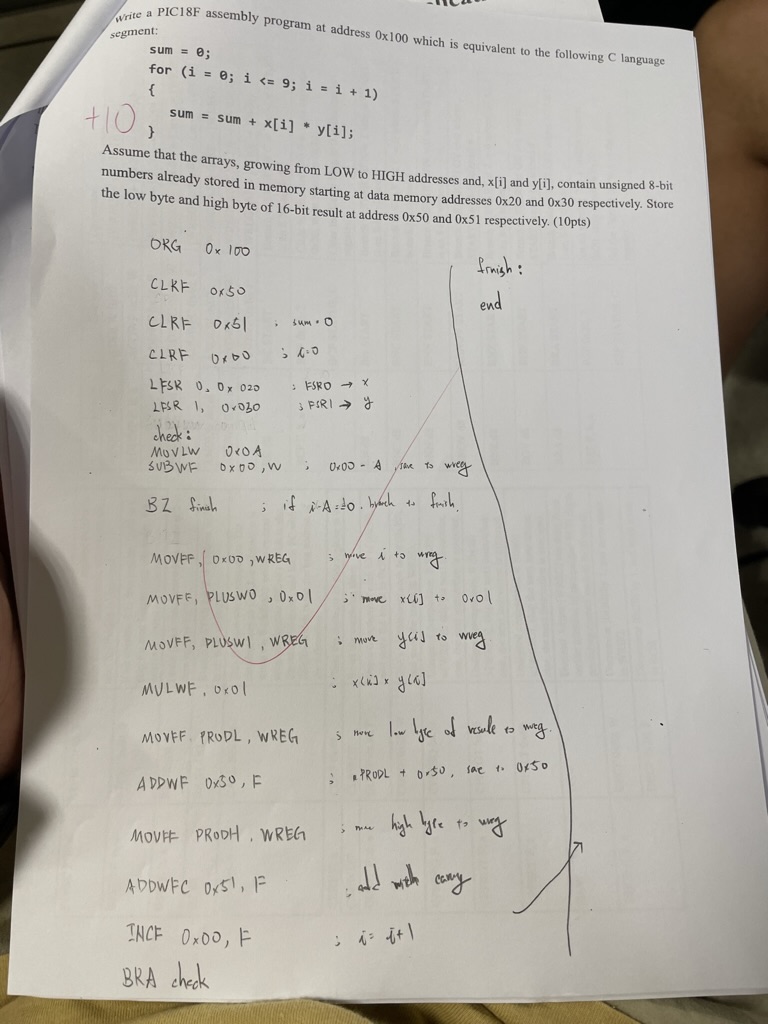 Write a PIC18F assembly program at address 0x100 which is equivalent to the following C language
segment:
sum = 0;
for (i = 0; i <= 9; i = i + 1)
{
sum = sum + x[i] * y[i];
}
+10
Assume that the arrays, growing from LOW to HIGH addresses and, x[i] and y[i], contain unsigned 8-bit
numbers already stored in memory starting at data memory addresses 0x20 and 0x30 respectively. Store
the low byte and high byte of 16-bit result at address 0x50 and 0x51 respectively. (10pts)
ORG 0x100
CLRF 0x50
CLRF 0x51 ; sum=0
CLRF 0x00 ; i=0
LFSR 0, 0x020 ; FSR0 → x
LFSR 1, 0x030 ; FSR1 → y
check:
MOVLW 0x0A
SUBWF 0x00, W ; 0x00 - A, save to wreg
BZ finish ; if i-A=0, branch to finish.
MOVFF, 0x00, WREG ; move i to wreg
MOVFF, PLUSW0, 0x01 ; move x[i] to 0x01
MOVFF, PLUSW1, WREG ; move y[i] to wreg
MULWF, 0x01 ; x[i] x y[i]
MOVFF PRODL, WREG ; move low byte of result to wreg.
ADDWF 0x50, F ; PRODL + 0x50, save to 0x50
MOVFF PRODH, WREG ; move high byte to wreg
ADDWFC 0x51, F ; add with carry
INCF 0x00, F ; i = i+1
BRA check
finish:
end